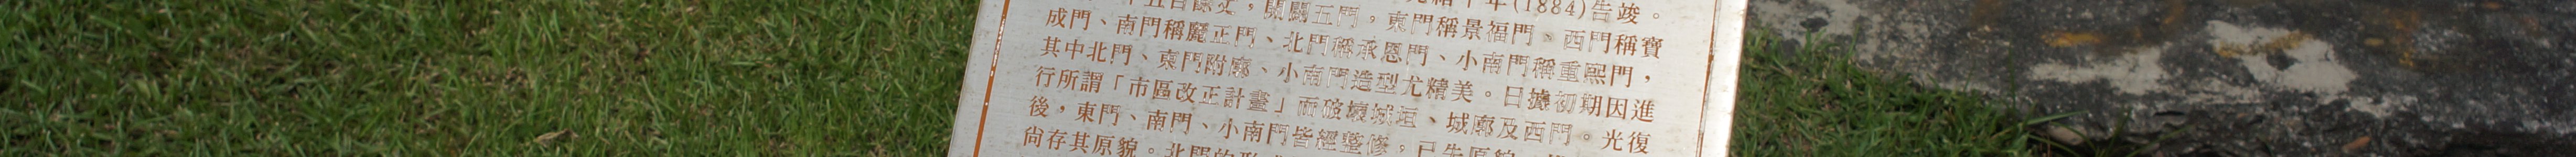 年(1884)告竣。
開闢五門，東門稱景福門、西門稱寶
成門、南門稱麗正門、北門稱承恩門、小南門稱重熙門，
其中北門、東門附廓、小南門造型尤精美。日據初期因進
行所謂「市區改正計畫」而破壞城垣、城廓及西門。光復
後，東門、南門、小南門皆經整修，已失原貌
尚存其原貌。北門的形